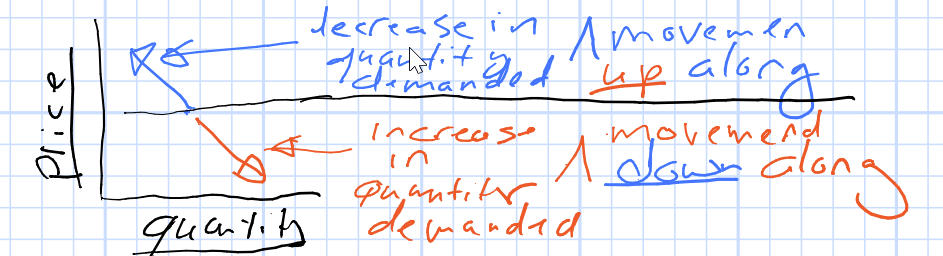 decrease in
quantity
demanded
/ movemen
up along
Price
increase
in
quantity
demanded
/ movemend
down along
quantity